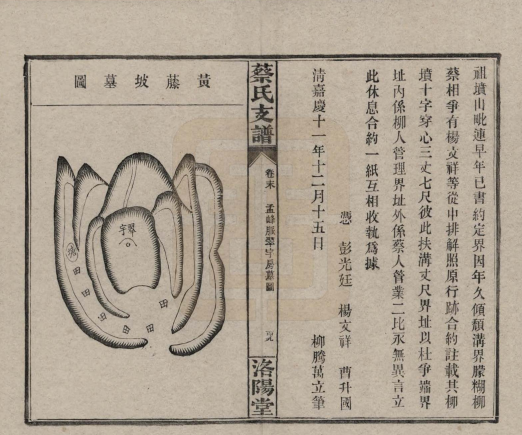 祖墳山毗連早年已書約定界因年久傾頹溝界朦糊柳
蔡相爭有楊文祥等從中排解照原行跡合約註載其柳
墳十字穿心三丈七尺彼此扶溝丈尺界址以杜爭端界
址內係柳人管理界址外係蔡人管業二比永無異言立
此休息合約一紙互相收執為據
清嘉慶十一年十二月十五日
憑 彭光廷 楊文祥 曹升國
柳騰萬立筆
蔡氏支譜
卷末 孟峰廕翠宇房墓圖
洛陽堂
黃藤坡墓圖
翠宇
田
田
田
田
田
田
田
田